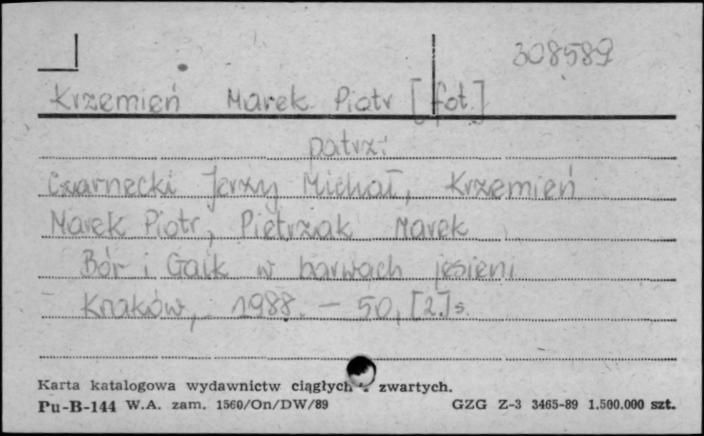 308589
Krzemień Marek Piotr [fot.]
patrz:
Czarnecki Jerzy Michał, Krzemień
Marek Piotr, Pietrzak Marek
Bór i Gaik w barwach jesieni
Kraków, 1988. - 50, [2] s.
Karta katalogowa wydawnictw ciągłych i zwartych.
Pu-B-144 W.A. zam. 1560/On/DW/89 GZG Z-3 3465-89 1.500.000 szt.